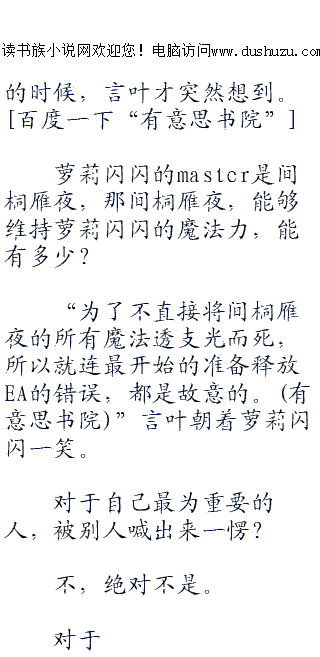 读书族小说网欢迎您！电脑访问www.dushuzu.com
的时候，言叶才突然想到。
[百度一下“有意思书院”]
萝莉闪闪的master是间
桐雁夜，那间桐雁夜，能够
维持萝莉闪闪的魔法力，能
有多少？
“为了不直接将间桐雁
夜的所有魔法透支光而死，
所以就连最开始的准备释放
EA的错误，都是故意的。(有
意思书院)”言叶朝着萝莉闪
闪一笑。
对于自己最为重要的
人，被别人喊出来一愣？
不，绝对不是。
对于